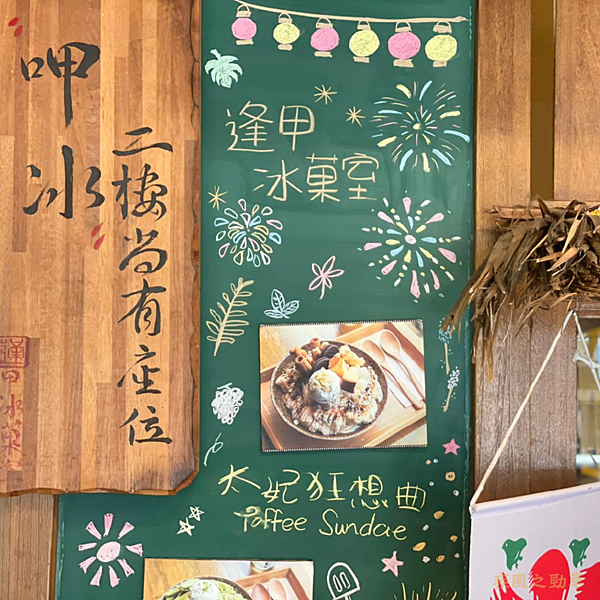 呷冰
二樓尚有座位
逢甲
冰菓室
太妃狂想曲
Toffee Sundae